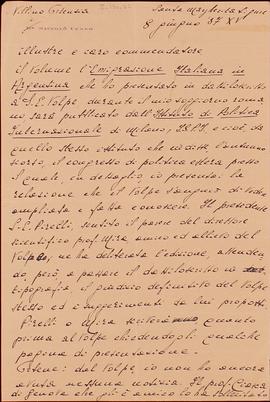 Villino Ortensia
Santa Margherita Ligure
8 giugno 37 XV
illustre e caro commendatore
il volume l'Emigrazione Italiana in
Argentina che ho presentato in dattiloscritto
a S.E. Volpe durante il mio soggiorno romano
sarà pubblicato dall'Istituto di Politica
Internazionale di Milano, I.S.P.I. e cioè, da
quello stesso istituto che indisse l'autunno
scorso, il congresso di politica estera presso
il quale, in dettaglio, io presentai la
relazione che il Volpe
ampliata e fatta conoscere. Il presidente
S.E. Pirelli, sentito il parere del direttore
scientifico prof. Mira, amico ed allievo del
Volpe, ne ha deliberata l'edizione, attenden
do, però, a passare il dattiloscritto in
tipografia, il giudizio definitivo del Volpe
stesso ed i suggerimenti da lui proposti.
Pirelli o Mira scriveranno quanto
prima al Volpe chiedendogli qualche
pagina di presentazione.
dal Volpe io non ho ancora
avuta nessuna notizia. Il prof.
di Genova che più è amico lo ha